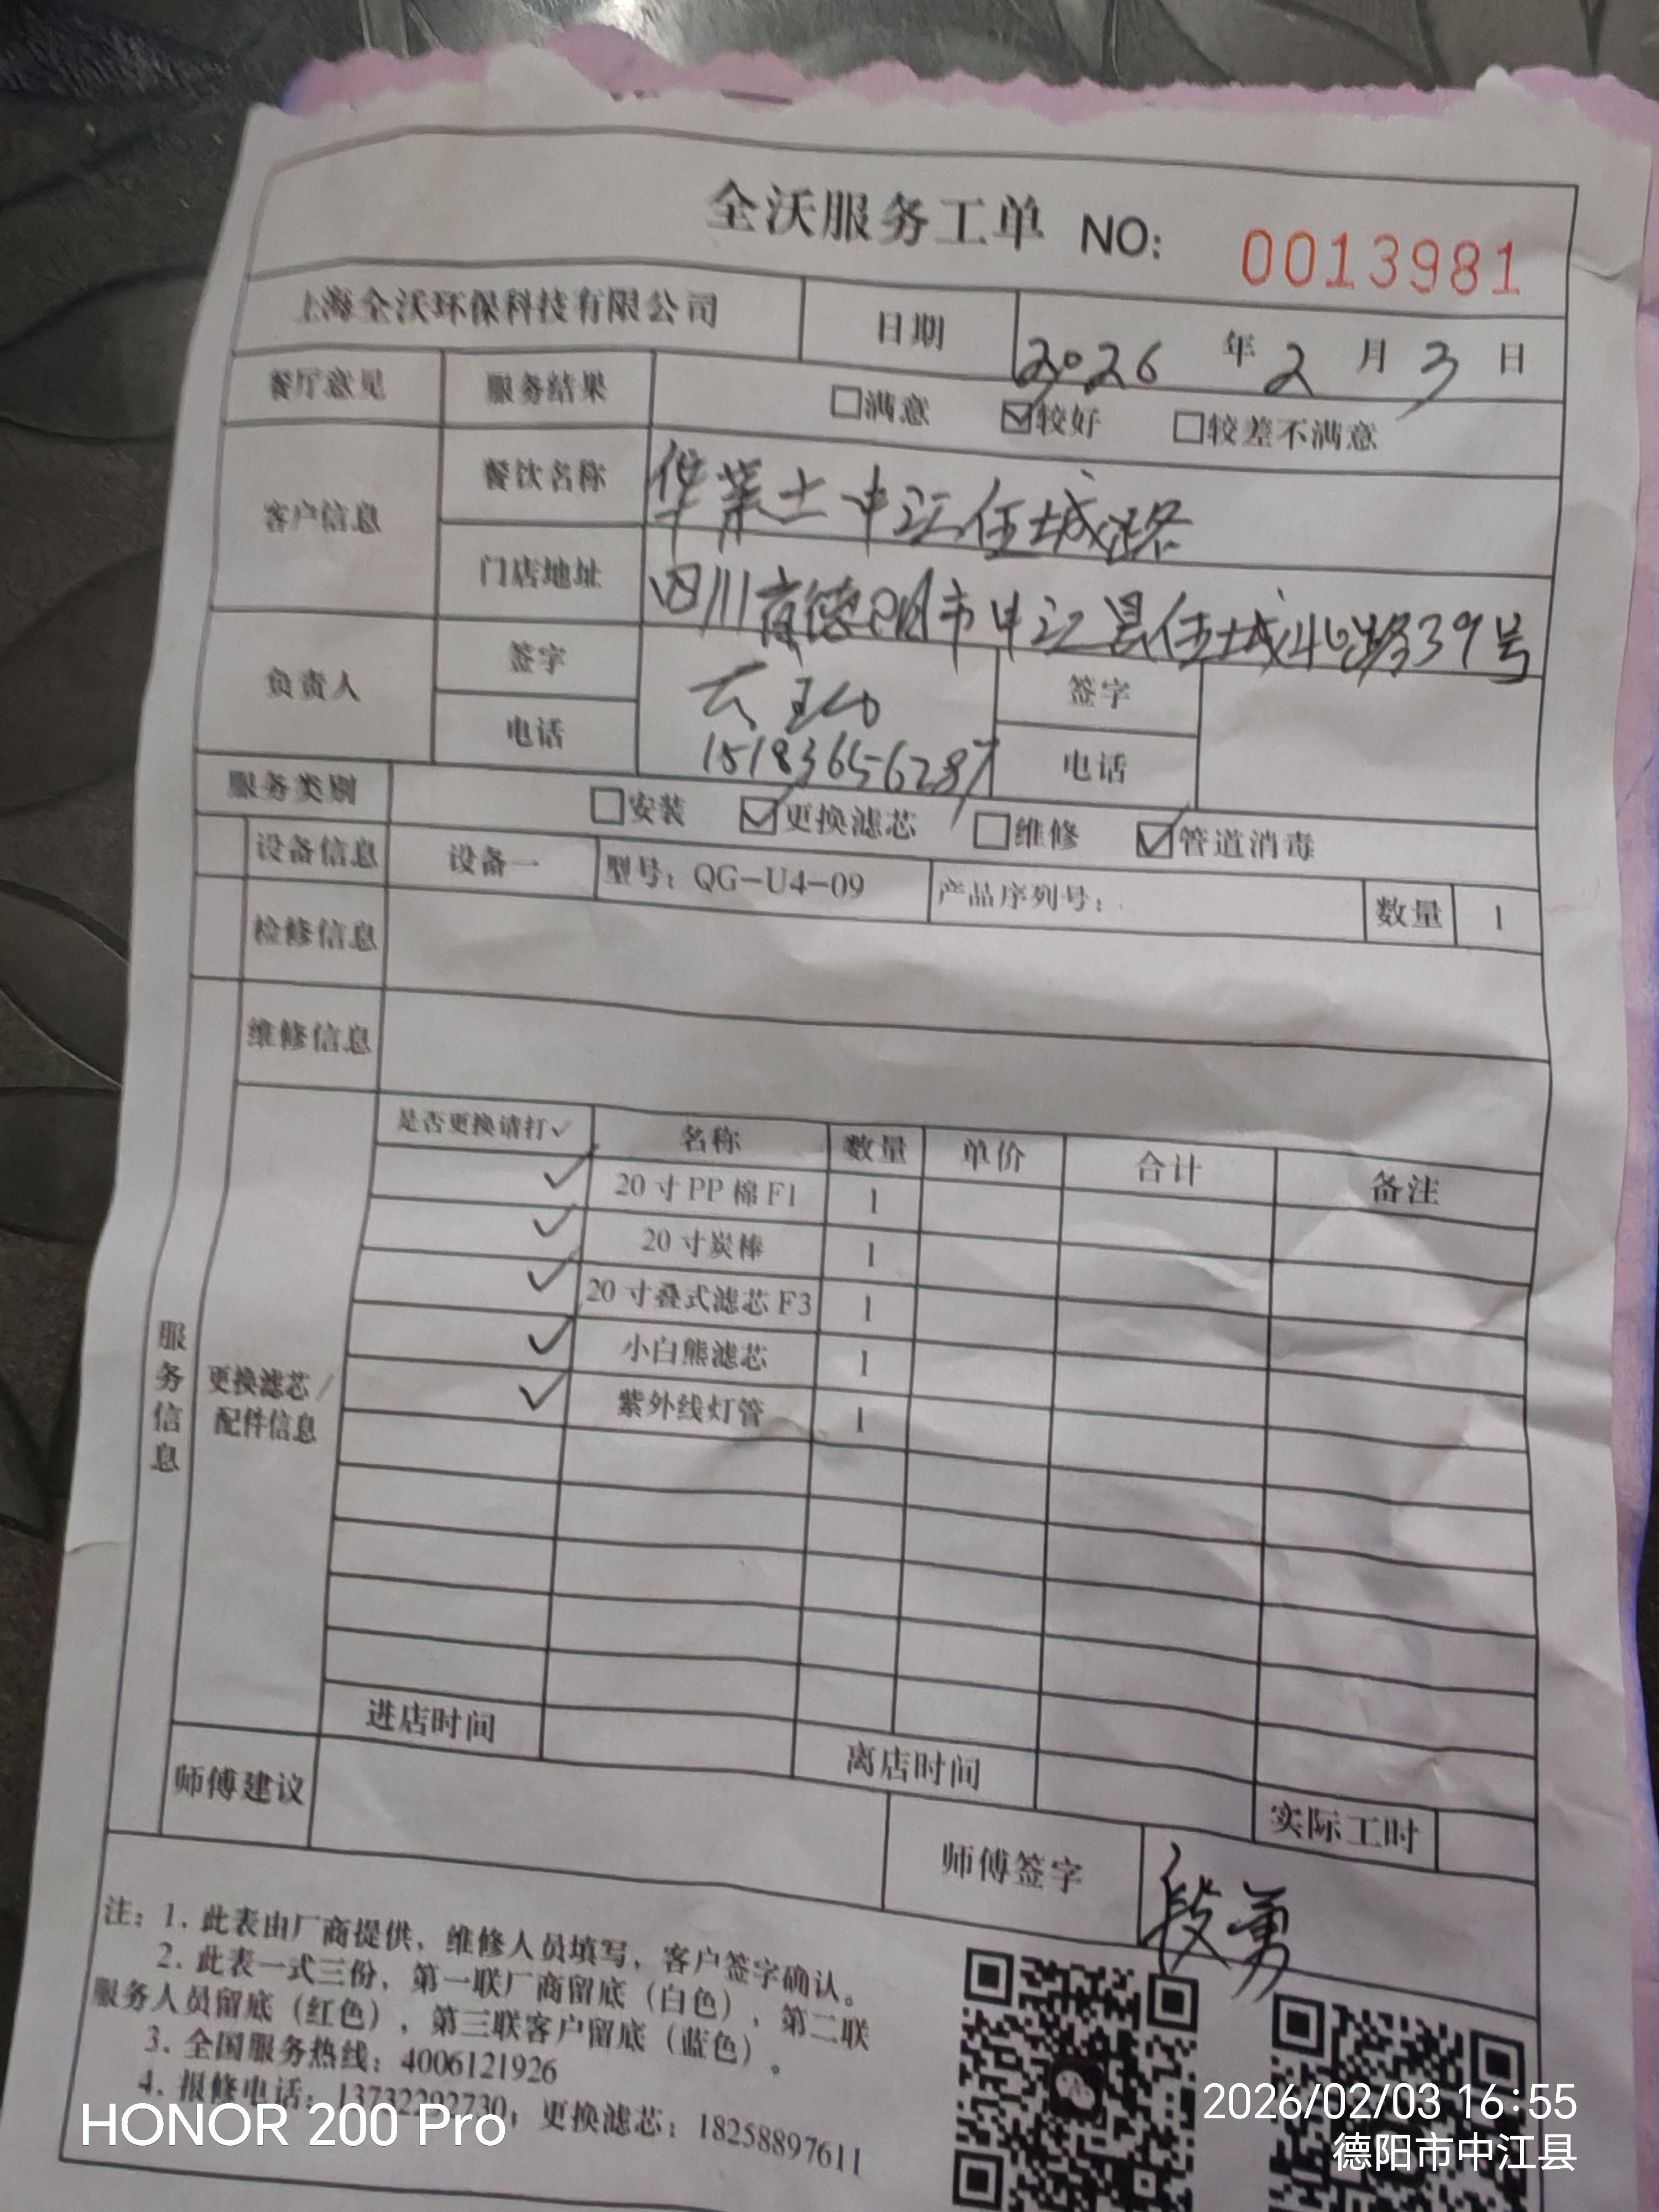 全沃服务工单 NO: 0013981
上海全沃环保科技有限公司 日期 2026 年 2 月 3 日
餐厅意见 服务结果 □满意 ☑较好 □较差不满意
客户信息 餐饮名称 华莱士中江伍城路
门店地址 四川省德阳市中江县伍城北路39号
负责人 签字 签字
电话 15183656287 电话
服务类别 □安装 ☑更换滤芯 □维修 ☑管道消毒
设备信息 设备一 型号：QG-U4-09 产品序列号： 数量 1
检修信息
维修信息
服务信息
更换滤芯/
配件信息
是否更换请打✓ 名称 数量 单价 合计 备注
✓ 20寸PP棉F1 1
✓ 20寸炭棒 1
✓ 20寸叠式滤芯F3 1
✓ 小白熊滤芯 1
✓ 紫外线灯管 1
进店时间 离店时间 实际工时
师傅建议 师傅签字 段勇
注：1. 此表由厂商提供，维修人员填写，客户签字确认。
2. 此表一式三份，第一联厂商留底（白色），第二联
服务人员留底（红色），第三联客户留底（蓝色）。
3. 全国服务热线：4006121926
4. 报修电话：13732292730，更换滤芯：18258897611
HONOR 200 Pro
2026/02/03 16:55
德阳市中江县